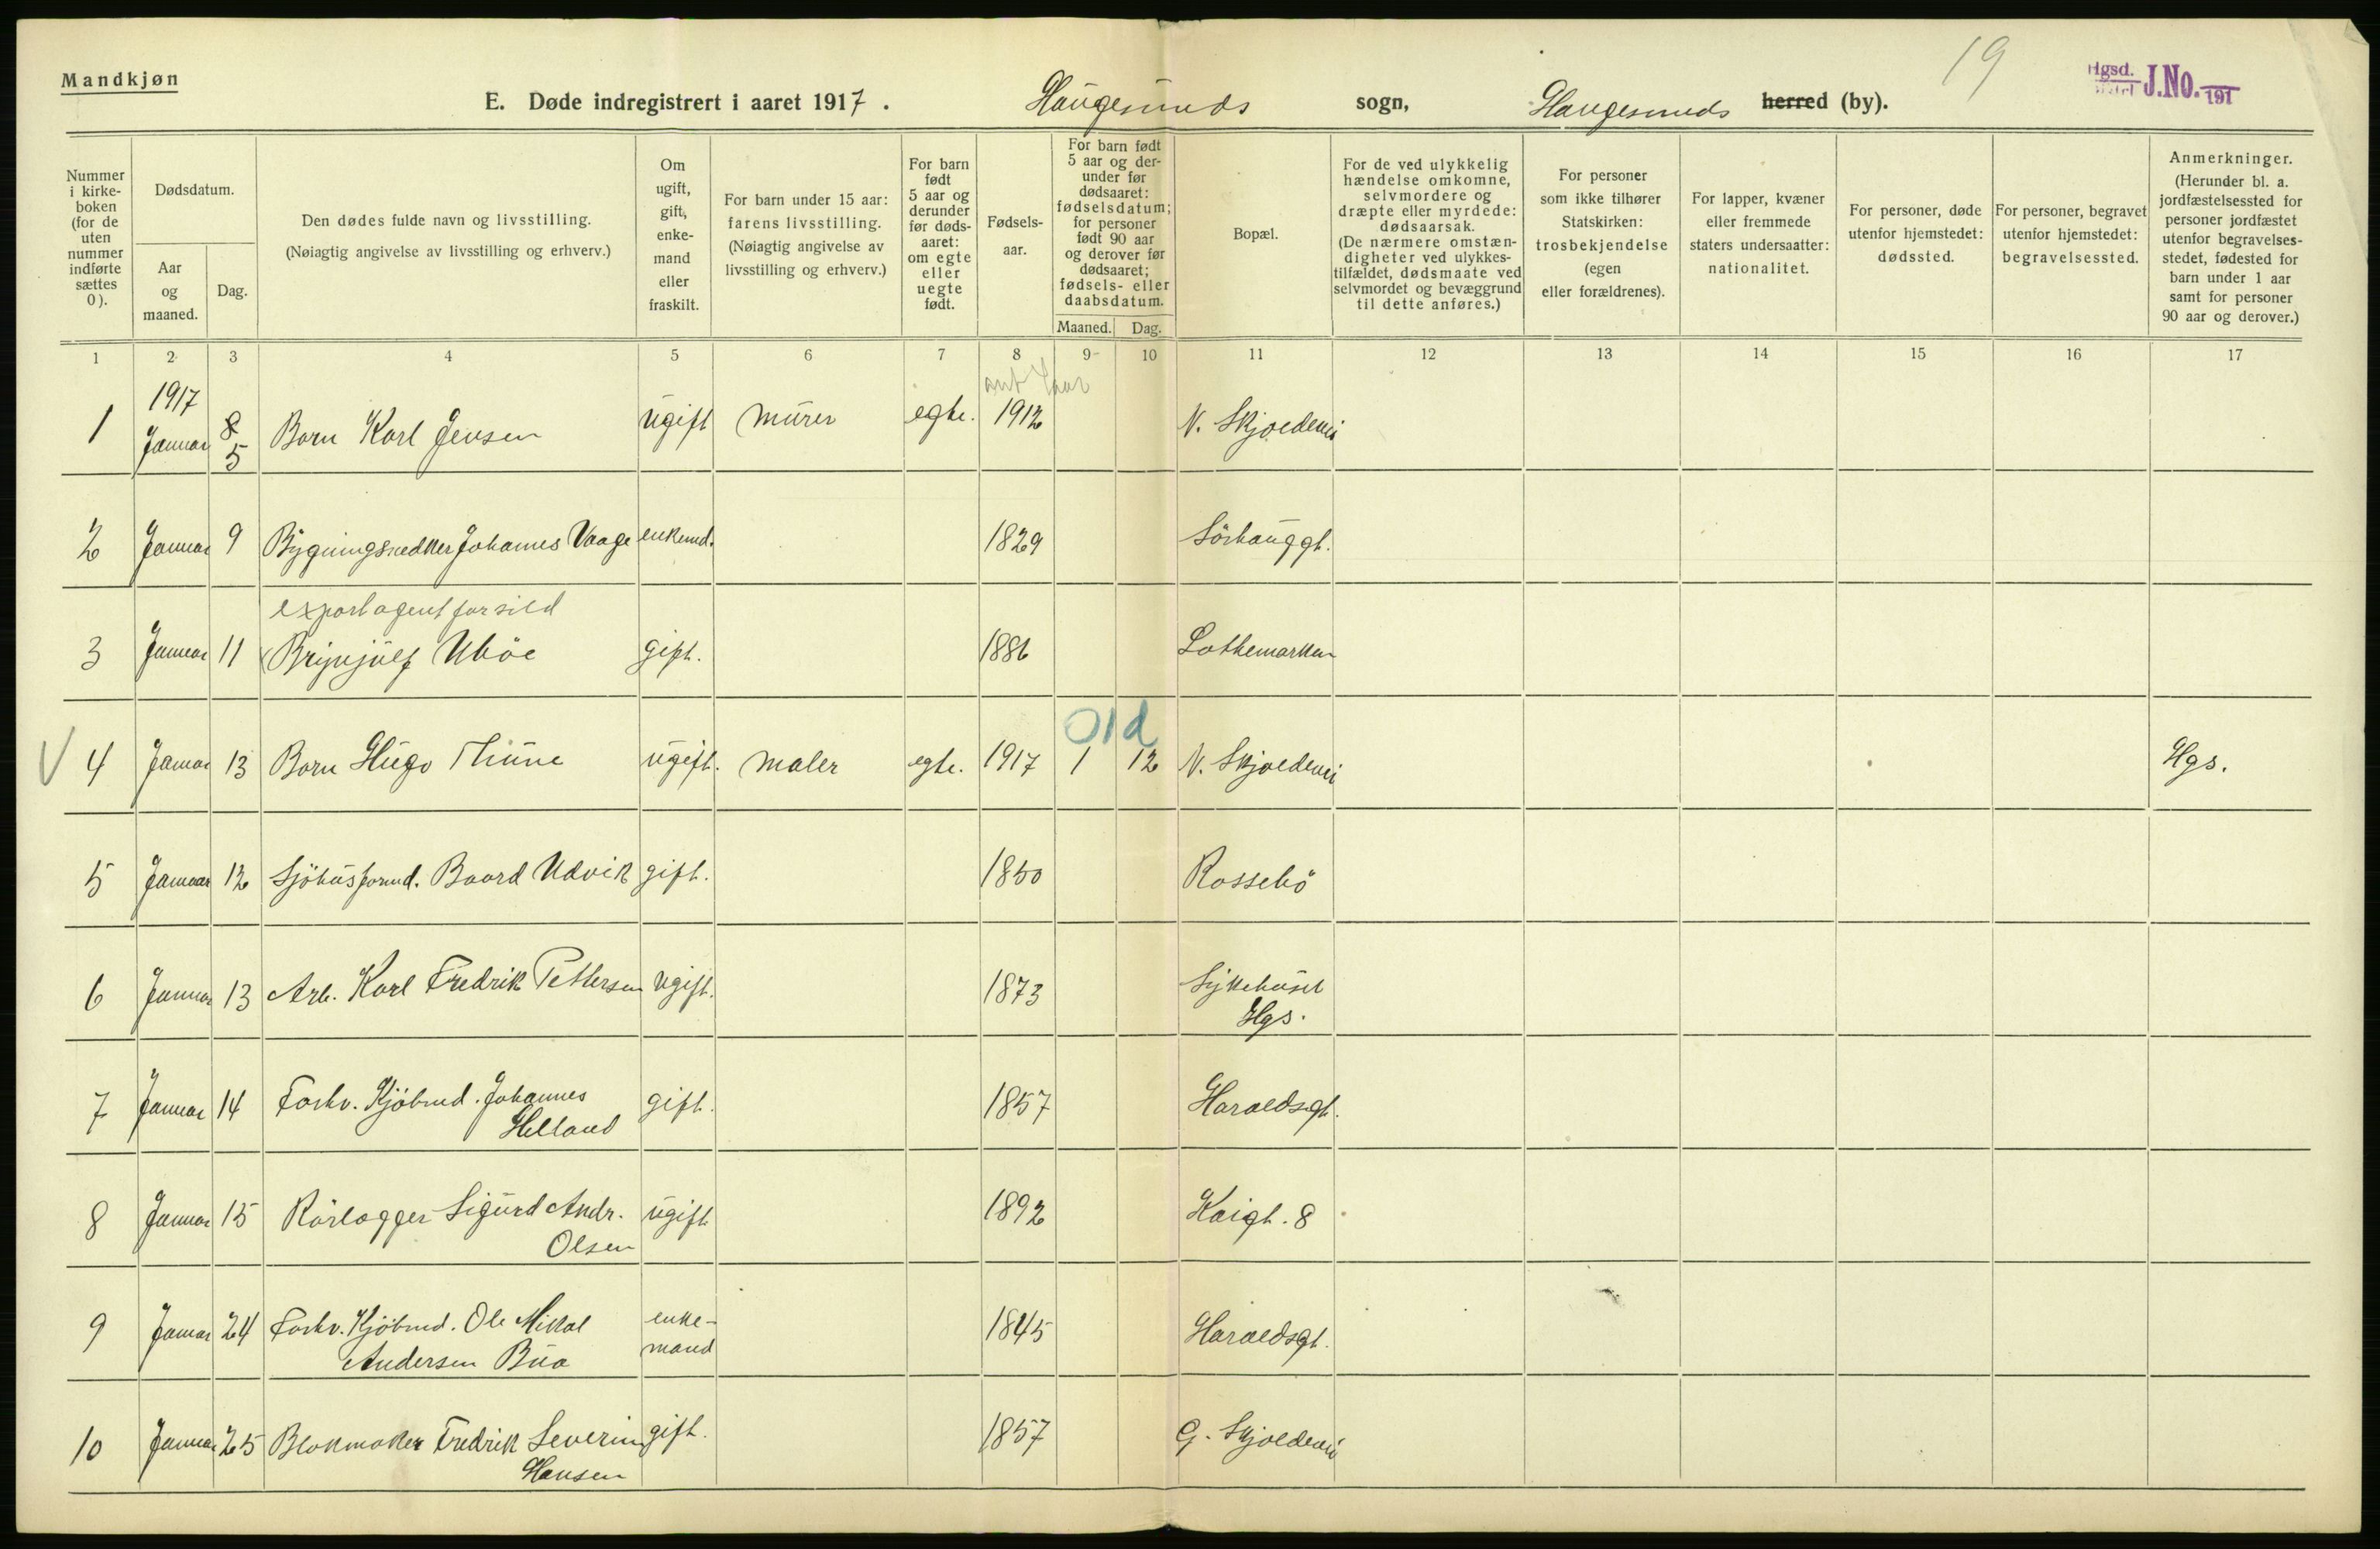 Mandkjøn
19
Hgsd. J.No. 191
E. Døde indregistrert i aaret 1917. Haugesunds sogn, Haugesunds herred (by).
Nummer i kirke-boken (for de uten nummer indførte sættes 0).
Dødsdatum.
Aar og maaned.
Dag.
Den dødes fulde navn og livsstilling.
(Nøiagtig angivelse av livsstilling og erhverv.)
Om ugift, gift, enke-mand eller fraskilt.
For barn under 15 aar: farens livsstilling. (Nøiagtig angivelse av livsstilling og erhverv.)
For barn født 5 aar og derunder før døds-aaret: om egte eller uegte født.
Fødsels-aar.
For barn født 5 aar og der-under før dødsaaret: fødselsdatum; for personer født 90 aar og derover før dødsaaret; fødsels- eller daabsdatum.
Maaned. Dag.
Bopæl.
For de ved ulykkelig hændelse omkomne, selvmordere og dræpte eller myrdede: dødsaarsak. (De nærmere omstæn-digheter ved ulykkes-tilfældet, dødsmaate ved selvmordet og bevæggrund til dette anføres.)
For personer som ikke tilhører Statskirken: trosbekjendelse (egen eller forældrenes).
For lapper, kvæner eller fremmede staters undersaatter: nationalitet.
For personer, døde utenfor hjemstedet: dødssted.
For personer, begravet utenfor hjemstedet: begravelsessted.
Anmerkninger. (Herunder bl. a. jordfæstelsessted for personer jordfæstet utenfor begravelses-stedet, fødested for barn under 1 aar samt for personer 90 aar og derover.)
1 2 3 4 5 6 7 8 9 10 11 12 13 14 15 16 17
ant 4 aar
1 1917 Januar 8 5 Barn Karl Jensen ugift murer egte. 1912 N. Skjoldevei
2 Januar 9 Bygningssnedker Johannes Vaage enkemd. 1829 Sörhauggt.
exportagent for sild
3 Januar 11 Brynjulf Uböe gift. 1886 Lothemarken
01d
V 4 Januar 13 Barn Hugo Thune ugift. maler egte. 1917 1 12 N. Skjoldevei Hgs.
5 Januar 12 Sjöhusformd. Baard Udvik gift. 1850 Rossebö
6 Januar 13 Arb. Karl Fredrik Pettersen ugift. 1873 Sykehuset
Hgs.
7 Januar 14 Forhv. Kjöbmd. Johannes gift. 1857 Haraldsgt.
Helland
8 Januar 15 Rörlægger Sigurd Andr. ugift 1892 Kaigt. 8
Olsen
9 Januar 24 Forhv. Kjöbmd. Ole Mikal enke- 1845 Haraldsgt.
Andersen Bua mand
10 Januar 25 Blokmaker Fredrik Severin gift. 1857 G. Skjoldevei
Hansen